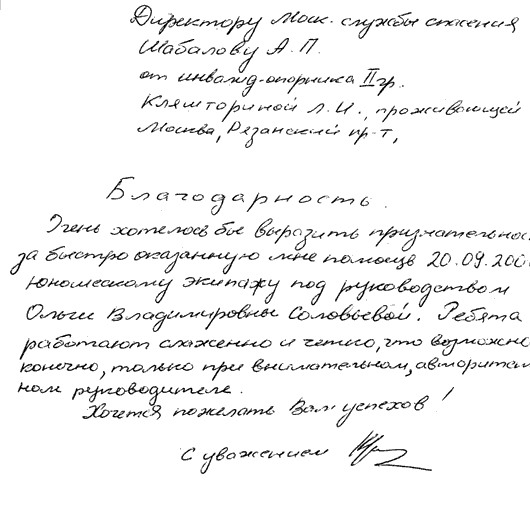 Директору Моск. службы спасения
Шабалову А.П.
от инвалид-опорника II гр.
Кляшториной Л.И., проживающей
Москва, Рязанский пр-т,
Благодарность.
Очень хотелось бы выразить признательнос
за быстро оказанную мне помощь 20.09.200
юношескому экипажу под руководством
Ольги Владимировны Соловьевой. Ребята
работают слаженно и четко, что возможно
конечно, только при внимательном, авторитет
ном руководителе.
Хочется пожелать Вам успехов!
С уважением